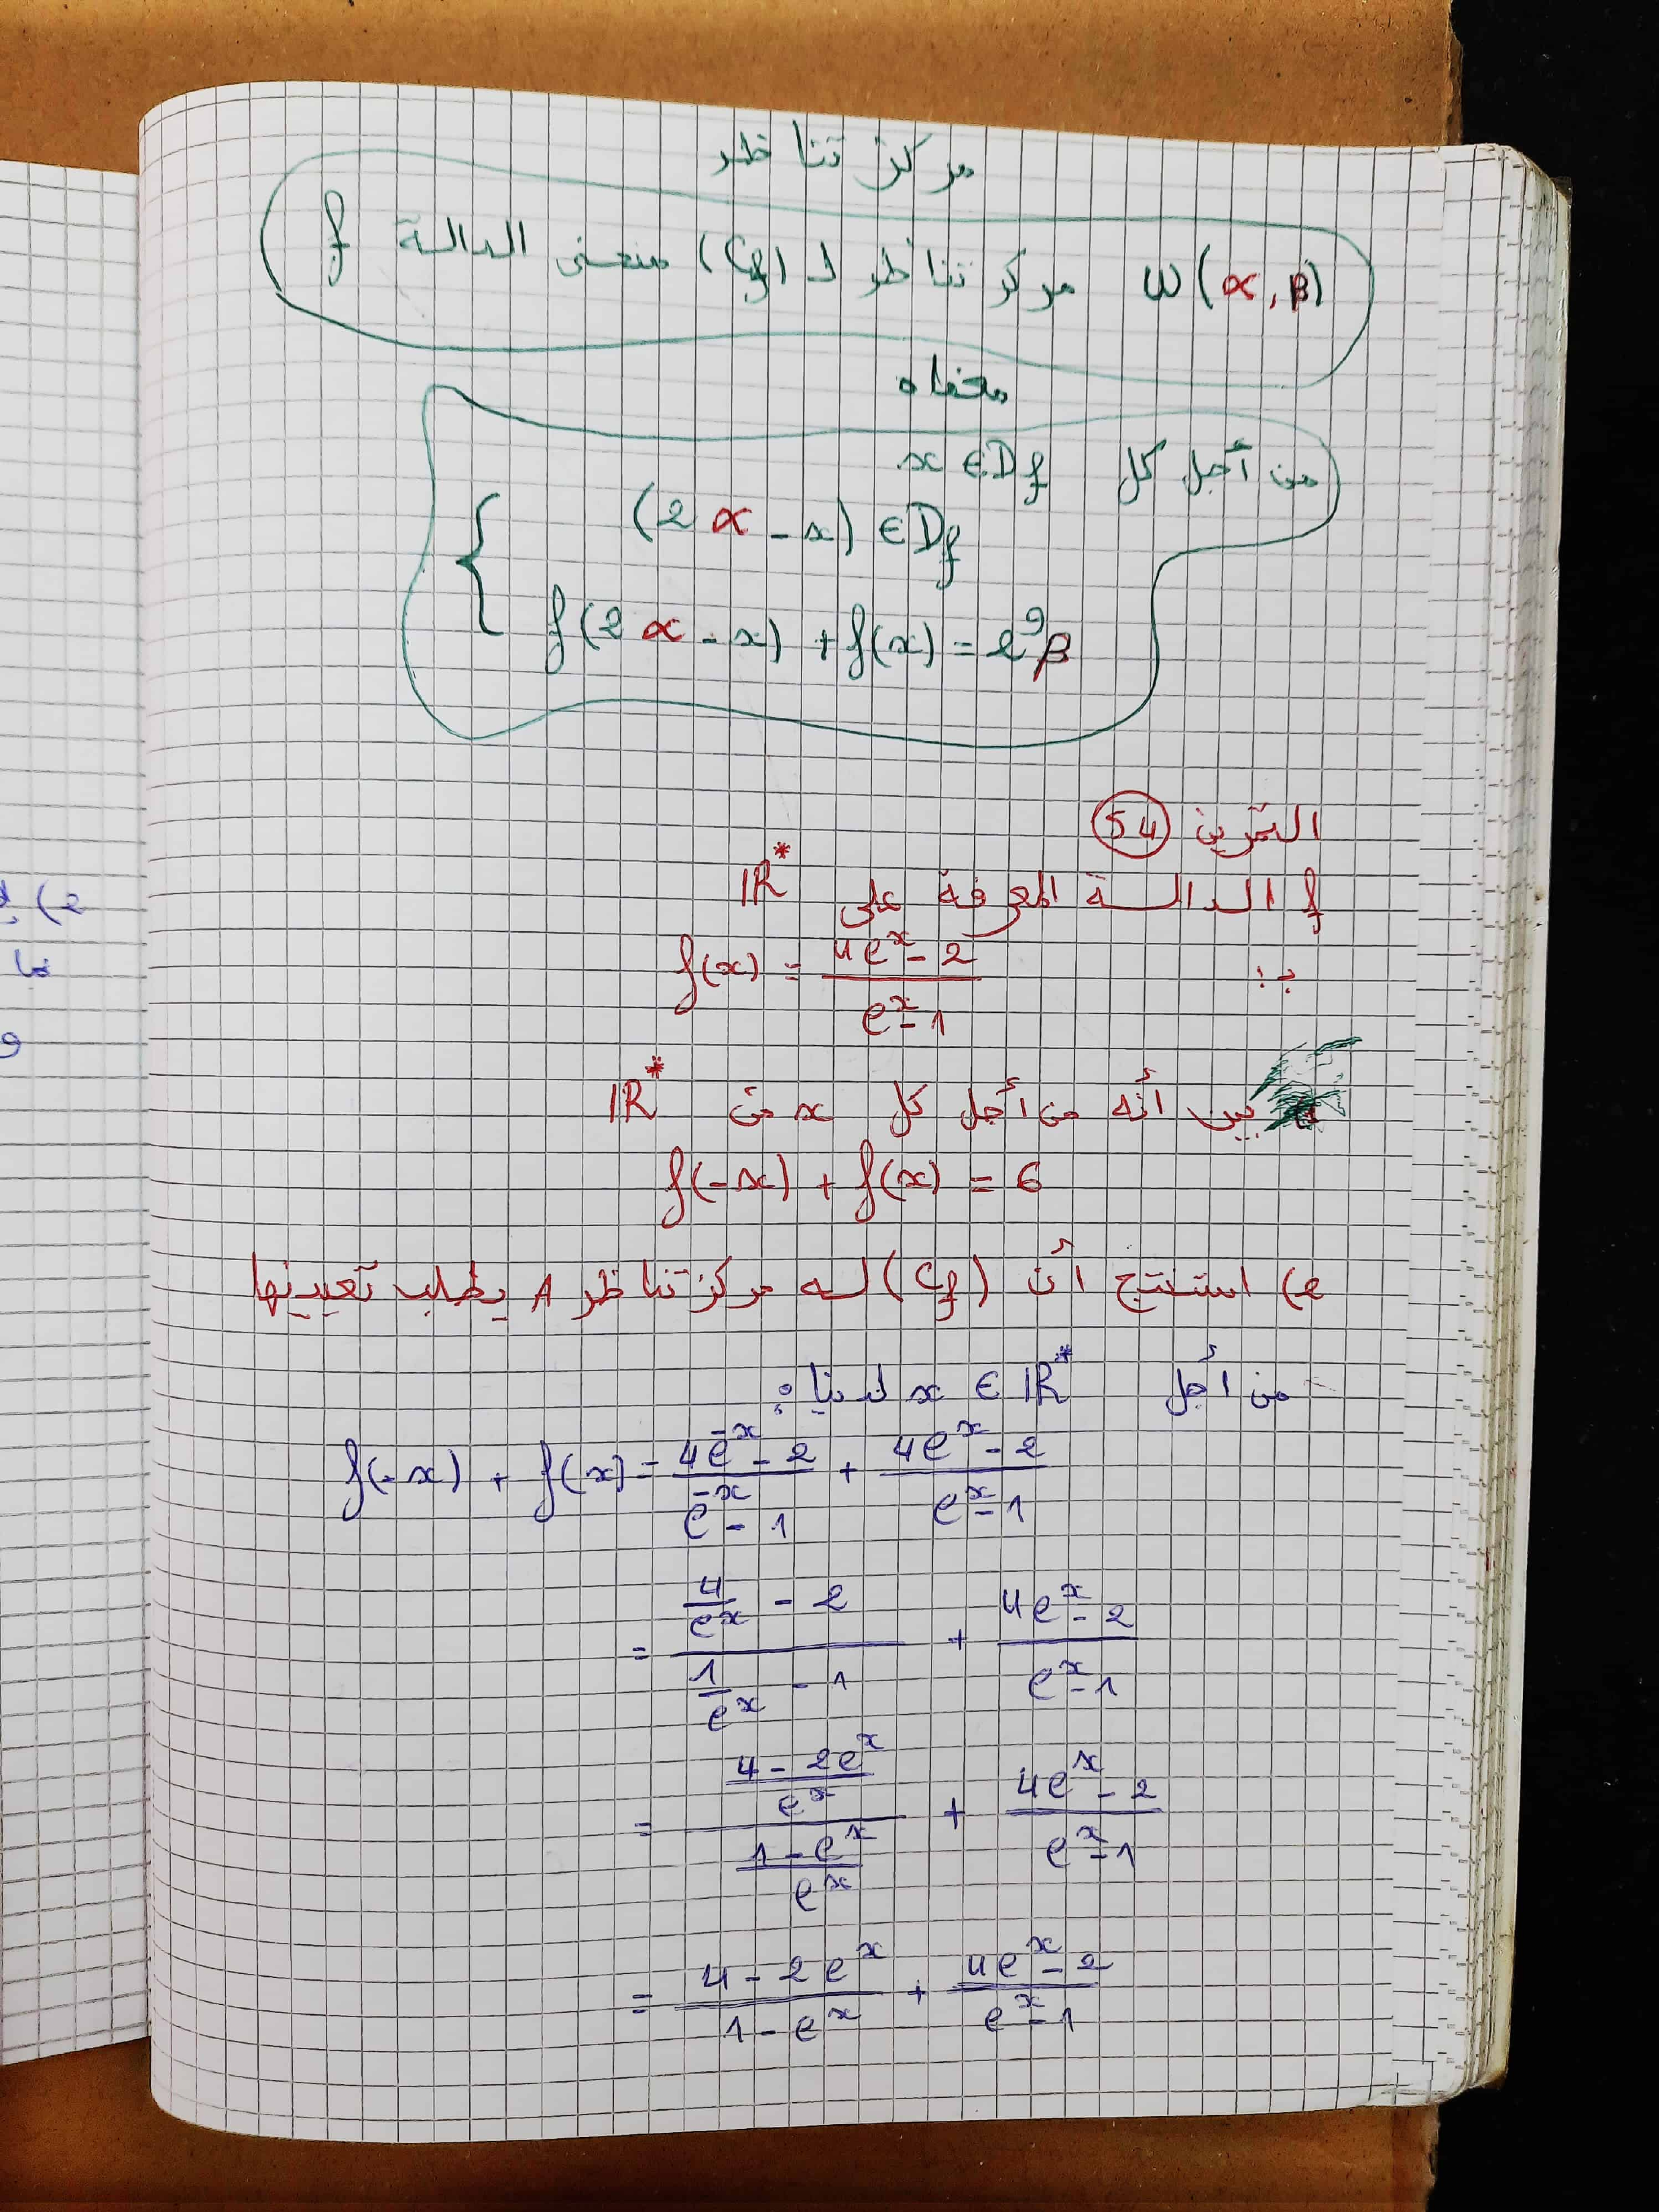 مركز تناظر
ω(α, β) مركز تناظر لـ (Cf) منحنى الدالة f
معناه
من أجل كل x ∈ Df
(2α - x) ∈ Df
f(2α - x) + f(x) = 2β
التمرين 54
f الدالة المعرفة على IR*
بـ: f(x) = (4e^x - 2)/(e^x - 1)
بين أنه من أجل كل x من IR*
f(-x) + f(x) = 6
2) استنتج أن (Cf) له مركز تناظر A يطلب تعيينها
من أجل x ∈ IR* لدينا:
f(-x) + f(x) = (4e^-x - 2)/(e^-x - 1) + (4e^x - 2)/(e^x - 1)
= (4/e^x - 2)/(1/e^x - 1) + (4e^x - 2)/(e^x - 1)
= ((4 - 2e^x)/e^x)/((1 - e^x)/e^x) + (4e^x - 2)/(e^x - 1)
= (4 - 2e^x)/(1 - e^x) + (4e^x - 2)/(e^x - 1)